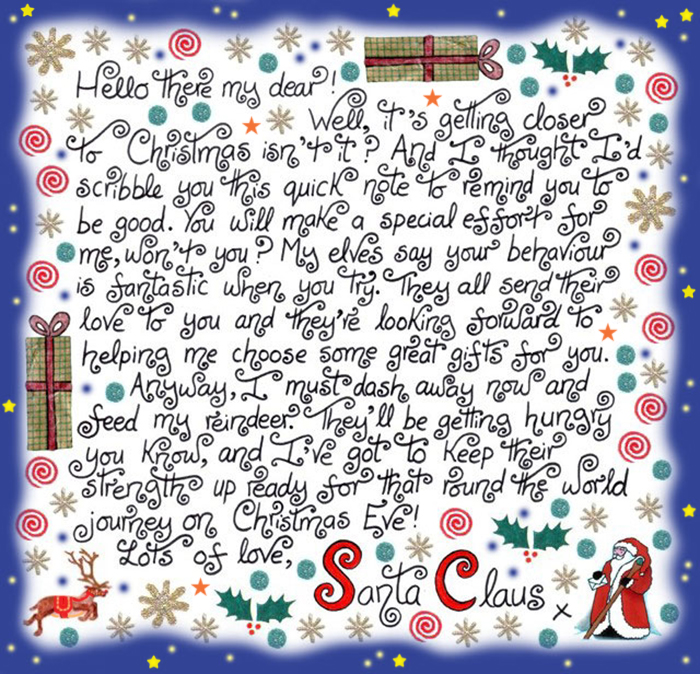 Hello there my dear!
Well, it's getting closer
to Christmas isn't it? And I thought I'd
scribble you this quick note to remind you to
be good. You will make a special effort for
me, won't you? My elves say your behaviour
is fantastic when you try. They all send their
love to you and they're looking forward to
helping me choose some great gifts for you.
Anyway, I must dash away now and
feed my reindeer. They'll be getting hungry
you know, and I've got to keep their
strength up ready for that round the world
journey on Christmas Eve!
Lots of love,
Santa Claus x